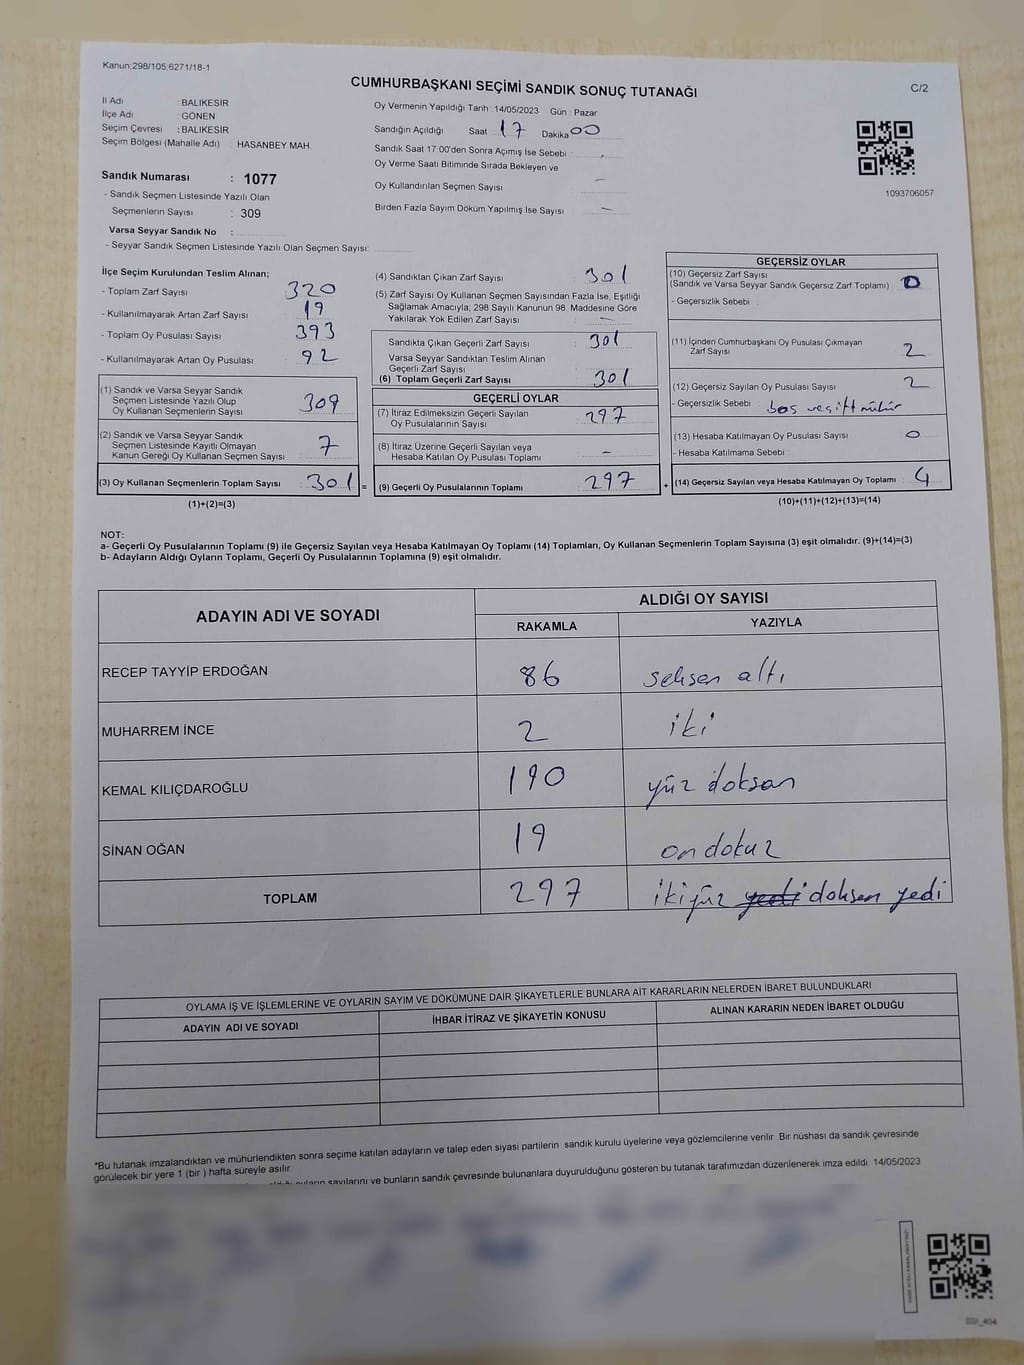 Kanun:298/105;6271/18-1
CUMHURBAŞKANI SEÇİMİ SANDIK SONUÇ TUTANAĞI
C/2
İl Adı : BALIKESİR
İlçe Adı : GÖNEN
Seçim Çevresi : BALIKESİR
Seçim Bölgesi (Mahalle Adı) : HASANBEY MAH.
Oy Vermenin Yapıldığı Tarih : 14/05/2023 Gün : Pazar
Sandığın Açıldığı Saat 17 Dakika 00
Sandık Saat 17:00'den Sonra Açımış İse Sebebi :
Oy Verme Saati Bitiminde Sırada Bekleyen ve
Oy Kullandırılan Seçmen Sayısı : —
Birden Fazla Sayım Döküm Yapılmış İse Sayısı : —
1093706057
Sandık Numarası : 1077
- Sandık Seçmen Listesinde Yazılı Olan
Seçmenlerin Sayısı : 309
Varsa Seyyar Sandık No :
- Seyyar Sandık Seçmen Listesinde Yazılı Olan Seçmen Sayısı:
İlçe Seçim Kurulundan Teslim Alınan;
- Toplam Zarf Sayısı : 320
- Kullanılmayarak Artan Zarf Sayısı : 19
- Toplam Oy Pusulası Sayısı : 393
- Kullanılmayarak Artan Oy Pusulası : 92
(1) Sandık ve Varsa Seyyar Sandık
Seçmen Listesinde Yazılı Olup
Oy Kullanan Seçmenlerin Sayısı : 309
(2) Sandık ve Varsa Seyyar Sandık
Seçmen Listesinde Kayıtlı Olmayan
Kanun Gereği Oy Kullanan Seçmen Sayısı : 7
(3) Oy Kullanan Seçmenlerin Toplam Sayısı : 301 =
(1)+(2)=(3)
(4) Sandıktan Çıkan Zarf Sayısı : 301
(5) Zarf Sayısı Oy Kullanan Seçmen Sayısından Fazla İse, Eşitliği
Sağlamak Amacıyla; 298 Sayılı Kanunun 98. Maddesine Göre
Yakılarak Yok Edilen Zarf Sayısı : —
Sandıkta Çıkan Geçerli Zarf Sayısı : 301
Varsa Seyyar Sandıktan Teslim Alınan
Geçerli Zarf Sayısı :
(6) Toplam Geçerli Zarf Sayısı : 301
GEÇERLİ OYLAR
(7) İtiraz Edilmeksizin Geçerli Sayılan
Oy Pusulalarının Sayısı : 297
(8) İtiraz Üzerine Geçerli Sayılan veya
Hesaba Katılan Oy Pusulası Toplamı : —
(9) Geçerli Oy Pusulalarının Toplamı : 297 +
GEÇERSİZ OYLAR
(10) Geçersiz Zarf Sayısı
(Sandık ve Varsa Seyyar Sandık Geçersiz Zarf Toplamı) : 0
- Geçersizlik Sebebi :
(11) İçinden Cumhurbaşkanı Oy Pusulası Çıkmayan
Zarf Sayısı : 2
(12) Geçersiz Sayılan Oy Pusulası Sayısı : 2
- Geçersizlik Sebebi : boş ve çift mühür
(13) Hesaba Katılmayan Oy Pusulası Sayısı : 0
- Hesaba Katılmama Sebebi :
(14) Geçersiz Sayılan veya Hesaba Katılmayan Oy Toplamı : 4
(10)+(11)+(12)+(13)=(14)
NOT:
a- Geçerli Oy Pusulalarının Toplamı (9) ile Geçersiz Sayılan veya Hesaba Katılmayan Oy Toplamı (14) Toplamları, Oy Kullanan Seçmenlerin Toplam Sayısına (3) eşit olmalıdır. (9)+(14)=(3)
b- Adayların Aldığı Oyların Toplamı, Geçerli Oy Pusulalarının Toplamına (9) eşit olmalıdır.
ADAYIN ADI VE SOYADI ALDIĞI OY SAYISI
RAKAMLA YAZIYLA
RECEP TAYYİP ERDOĞAN 86 seksen altı
MUHARREM İNCE 2 iki
KEMAL KILIÇDAROĞLU 190 yüz doksan
SİNAN OĞAN 19 on dokuz
TOPLAM 297 ikiyüz yedi doksan yedi
OYLAMA İŞ VE İŞLEMLERİNE VE OYLARIN SAYIM VE DÖKÜMÜNE DAİR ŞİKAYETLERLE BUNLARA AİT KARARLARIN NELERDEN İBARET BULUNDUKLARI
ADAYIN ADI VE SOYADI İHBAR İTİRAZ VE ŞİKAYETİN KONUSU ALINAN KARARIN NEDEN İBARET OLDUĞU
*Bu tutanak imzalandıktan ve mühürlendikten sonra seçime katılan adayların ve talep eden siyasi partilerin sandık kurulu üyelerine veya gözlemcilerine verilir. Bir nüshası da sandık çevresinde
görülecek bir yere 1 (bir ) hafta süreyle asılır.
oyların sayılarını ve bunların sandık çevresinde bulunanlara duyurulduğunu gösteren bu tutanak tarafımızdan düzenlenerek imza edildi. 14/05/2023
SSI_404